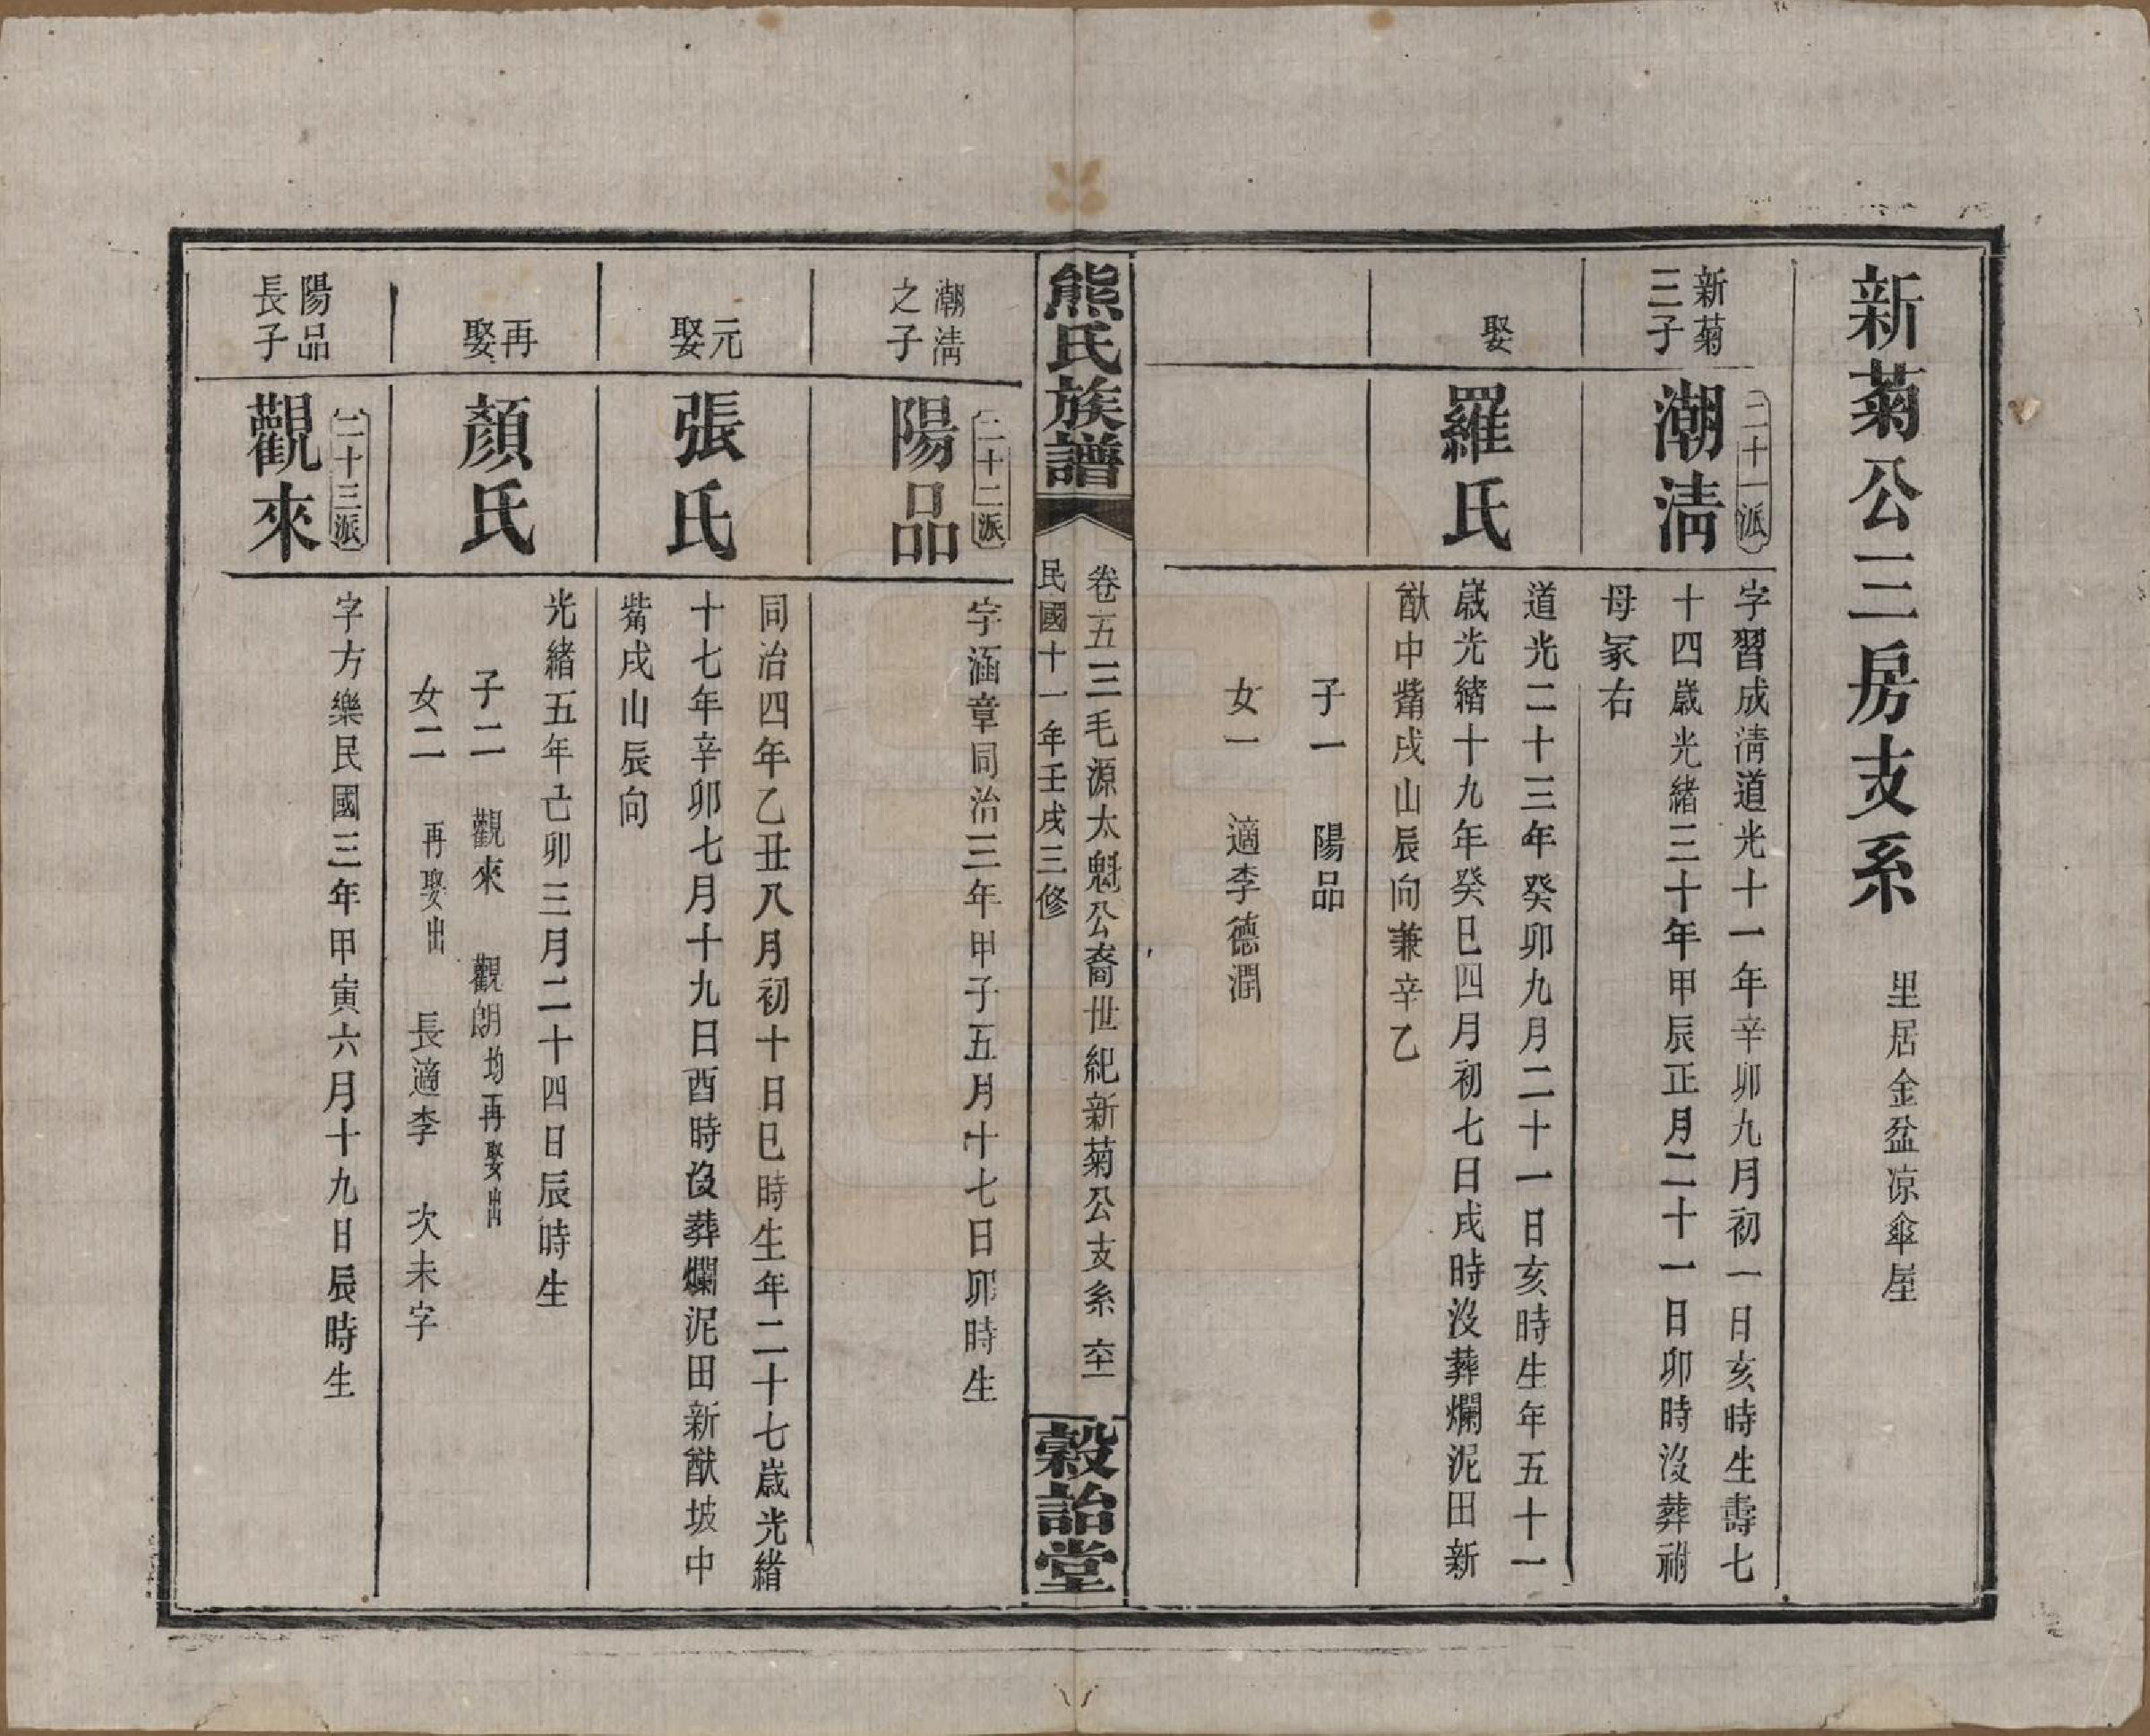 新菊公三房支系 里居金盆凉傘屋
新菊
三子
潮淸
二十一派
字習成淸道光十一年辛卯九月初一日亥時生壽七
十四歲光緒三十年甲辰正月二十一日卯時沒葬祔
母冢右
娶
羅氏
道光二十三年癸卯九月二十一日亥時生年五十一
歲光緒十九年癸巳四月初七日戌時沒葬爛泥田新
猷中觜戌山辰向兼辛乙
子一 陽品
女一 適李德潤
熊氏族譜
卷五三毛源太魁公裔世紀新菊公支系 六十一
民國十一年壬戌三修
穀詒堂
潮淸
之子
陽品
二十二派
字涵章同治三年甲子五月十七日卯時生
元
娶
張氏
同治四年乙丑八月初十日巳時生年二十七歲光緒
十七年辛卯七月十九日酉時沒葬爛泥田新猷坡中
觜戌山辰向
再
娶
顏氏
光緒五年己卯三月二十四日辰時生
子二 觀來 觀朗均再娶出
女二 再娶出 長適李 次未字
陽品
長子
觀來
二十三派
字方樂民國三年甲寅六月十九日辰時生